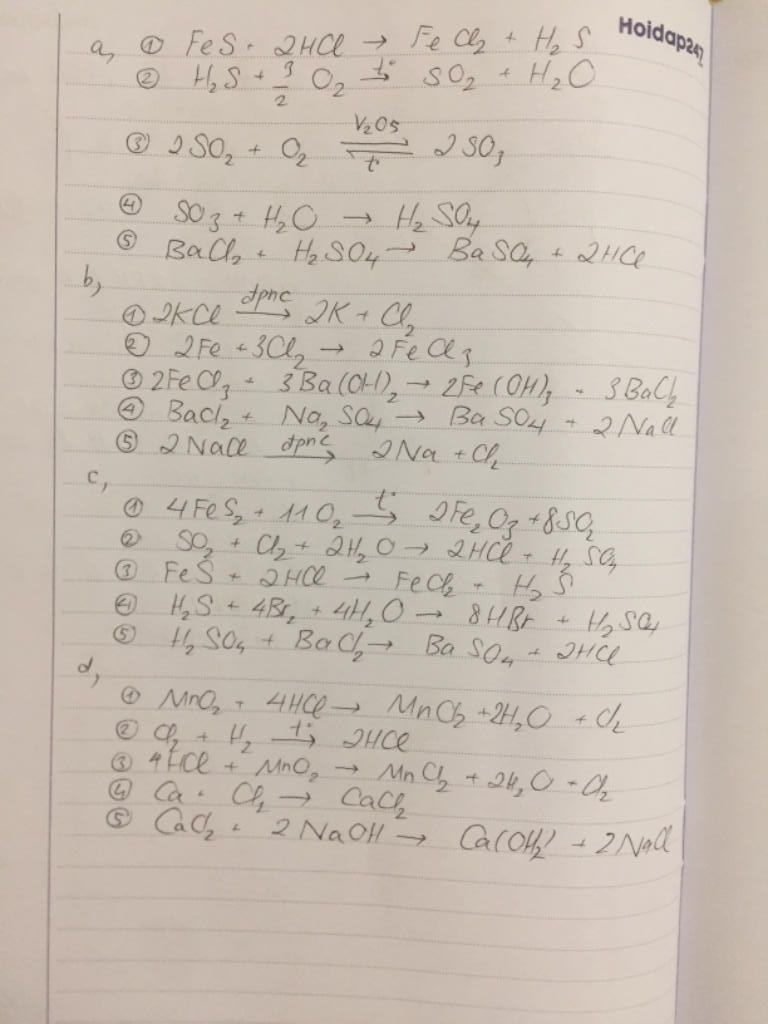 Hoidap247
a, ① FeS + 2HCl → FeCl₂ + H₂S
② H₂S + 3/2 O₂ t°→ SO₂ + H₂O
③ 2SO₂ + O₂ V₂O₅ ⇌ t° 2SO₃
④ SO₃ + H₂O → H₂SO₄
⑤ BaCl₂ + H₂SO₄ → BaSO₄ + 2HCl
b,
① 2KCl dpnc→ 2K + Cl₂
② 2Fe + 3Cl₂ → 2FeCl₃
③ 2FeCl₃ + 3Ba(OH)₂ → 2Fe(OH)₃ + 3BaCl₂
④ BaCl₂ + Na₂SO₄ → BaSO₄ + 2NaCl
⑤ 2NaCl dpnc→ 2Na + Cl₂
c,
① 4FeS₂ + 11O₂ t°→ 2Fe₂O₃ + 8SO₂
② SO₂ + Cl₂ + 2H₂O → 2HCl + H₂SO₄
③ FeS + 2HCl → FeCl₂ + H₂S
④ H₂S + 4Br₂ + 4H₂O → 8HBr + H₂SO₄
⑤ H₂SO₄ + BaCl₂ → BaSO₄ + 2HCl
d,
① MnO₂ + 4HCl → MnCl₂ + 2H₂O + Cl₂
② Cl₂ + H₂ t°→ 2HCl
③ 4HCl + MnO₂ → MnCl₂ + 2H₂O + Cl₂
④ Ca + Cl₂ → CaCl₂
⑤ CaCl₂ + 2NaOH → Ca(OH)₂ + 2NaCl